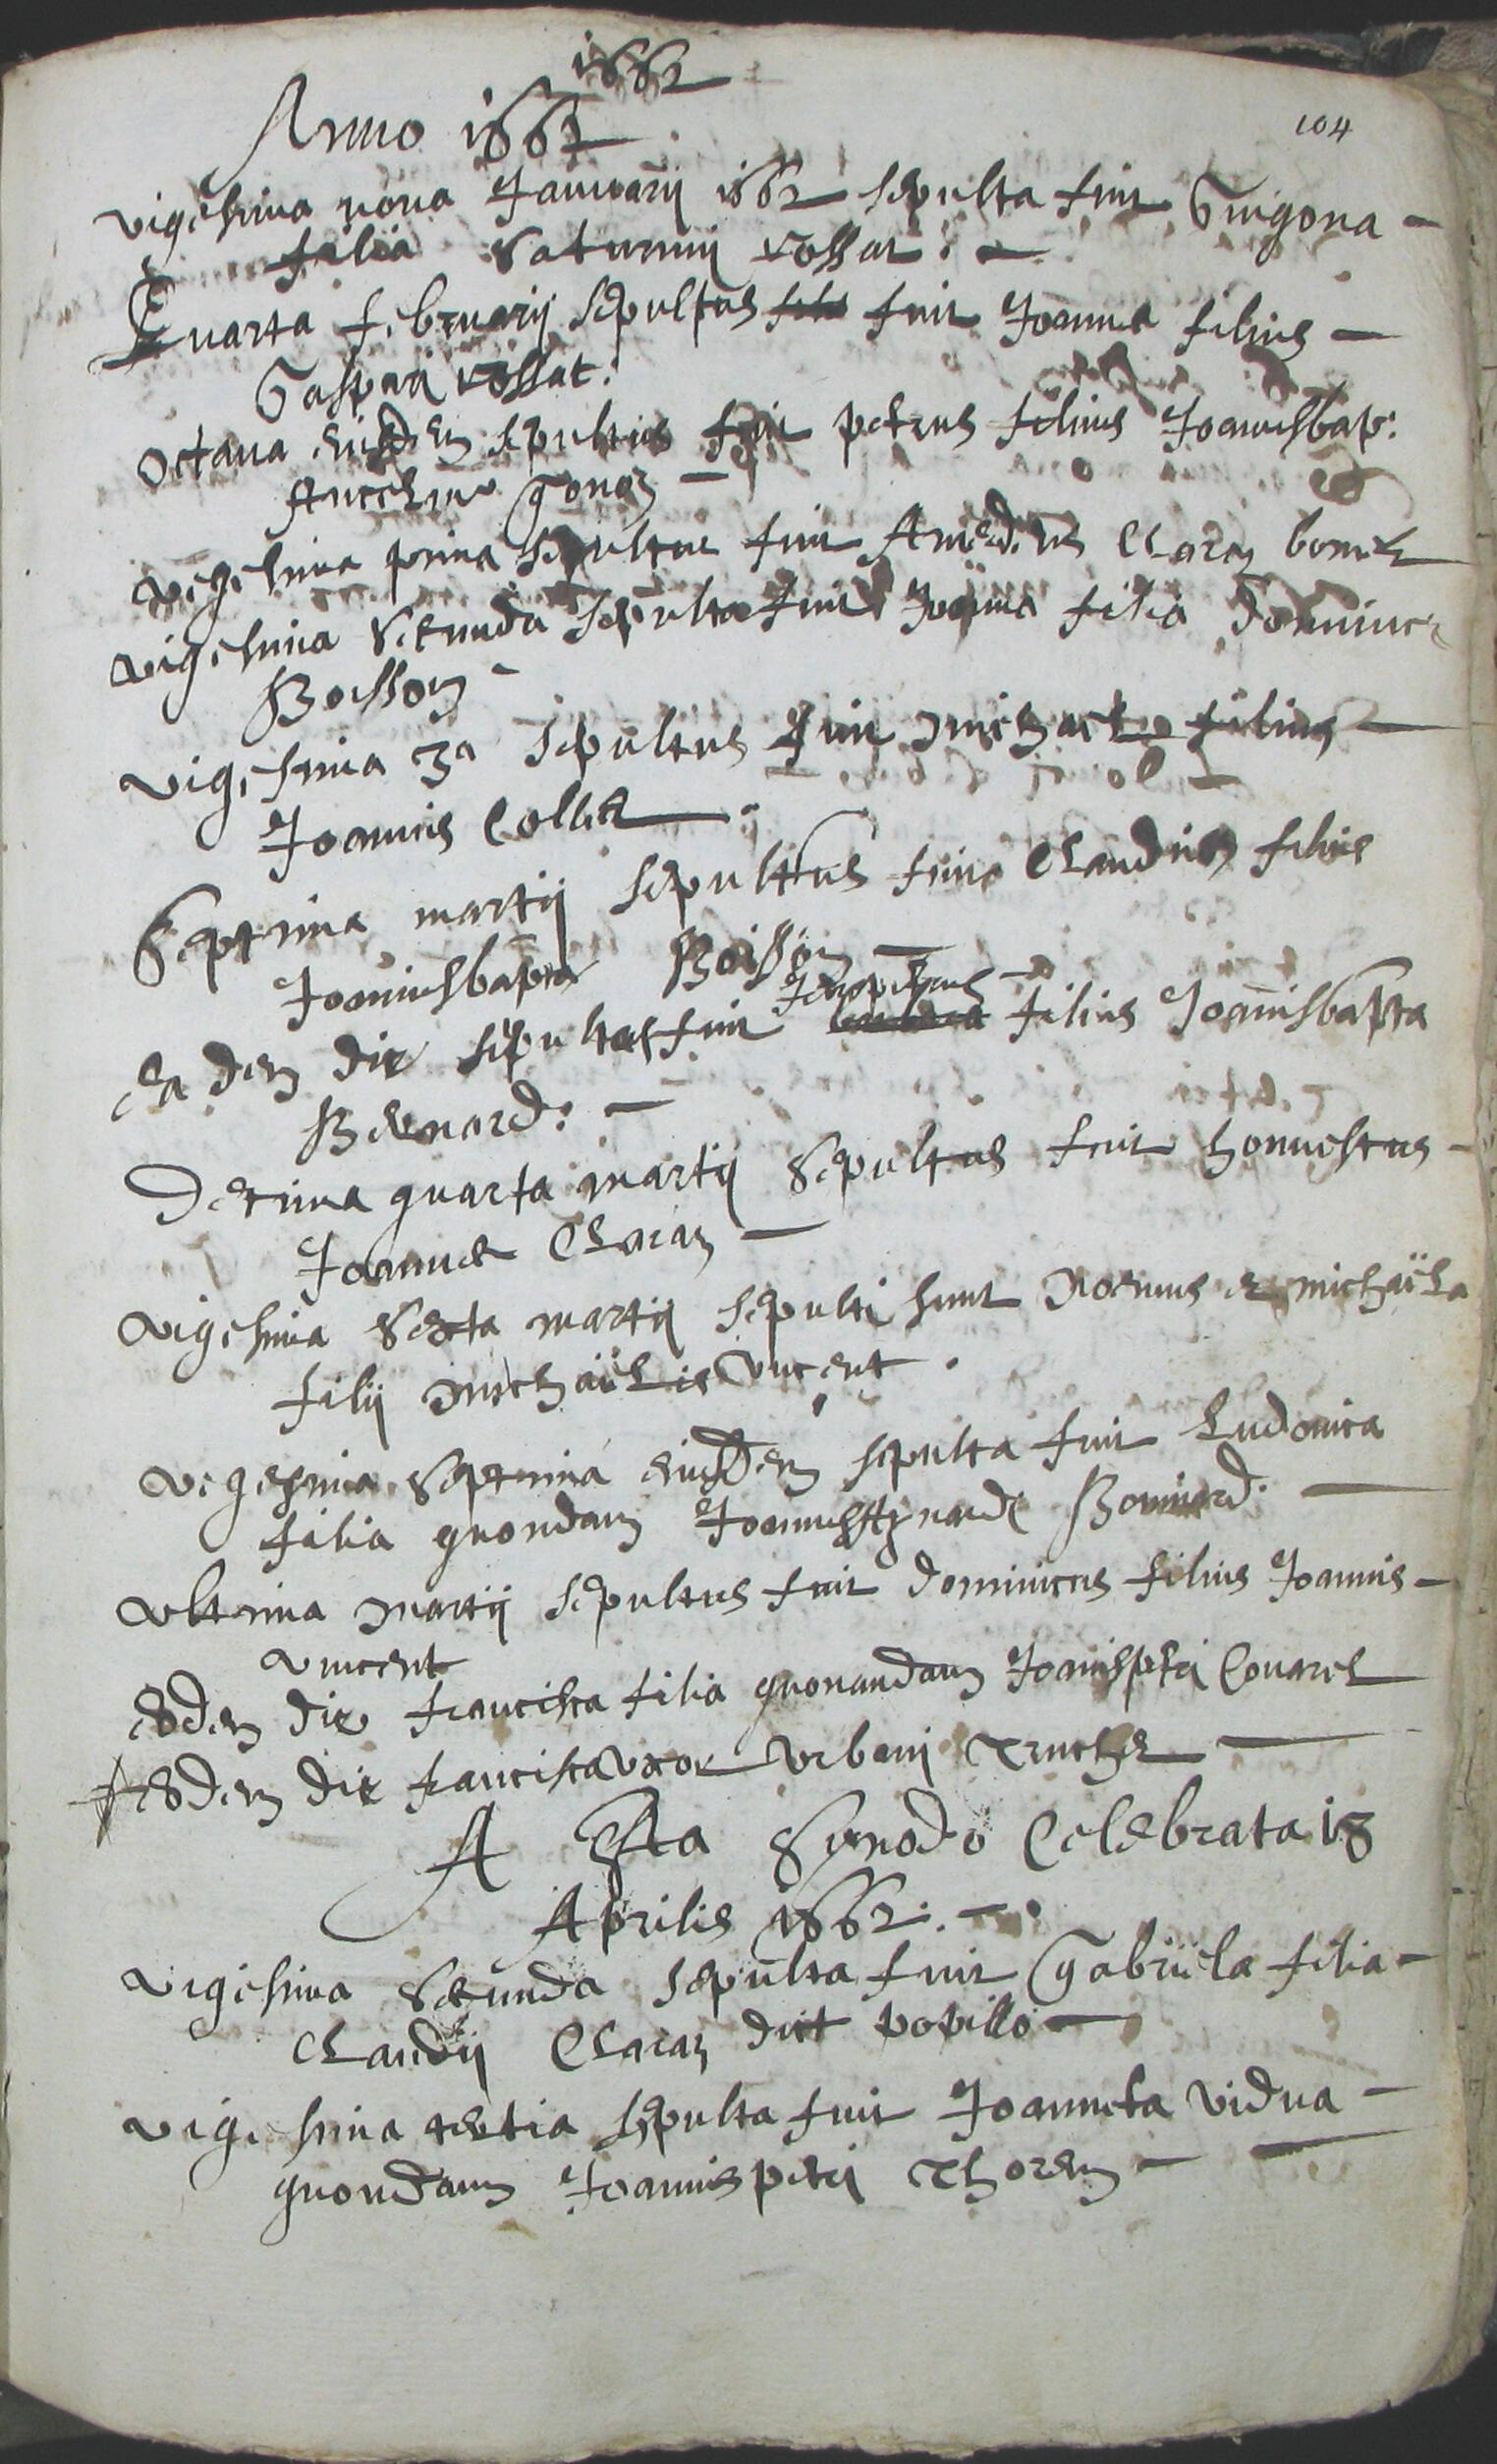 1662
Anno 1661
104
vigesima nona Januarij 1662 sepulta fuit Guigona
filia Saturnij rossat.
Quarta februarij sepultus fuit Joannes filius
Gaspari rossat.
Octaua eiusdem sepultus fuit petrus filius Joannisbap:
vigesima prima sepultus fuit Amedeus Claraz
vigesima secunda sepulta fuit Joanna filia Dominici
Boisson
vigesima 3a sepultus fuit michael filius
Joannis Collet
Septima martij sepultus fuit Claudius filius
Joannisbapta Boisson
eadem die sepultus fuit filius Joannisbapta
Bernard.
Decima quarta martij sepultus fuit honnestus
Joannes Claraz
vigesima sexta martij sepulti sunt et michaela
filij michaelis vincent.
vigesima septima eiusdem sepulta fuit Ludouica
filia quondam Bernard.
vltima martij sepultus fuit Dominicus filius Joannis
vincent
eodem die francisca filia quonandam Joannispetri
eodem die francisca vxor vrbani truchet
A Sta Synodo Celebrata 18
Aprilis 1662.
vigesima secunda sepulta fuit Gabriela filia
Claudij Claraz dict popillo
vigesima tertia sepulta fuit Joanneta vidua
quondam Joannispetri